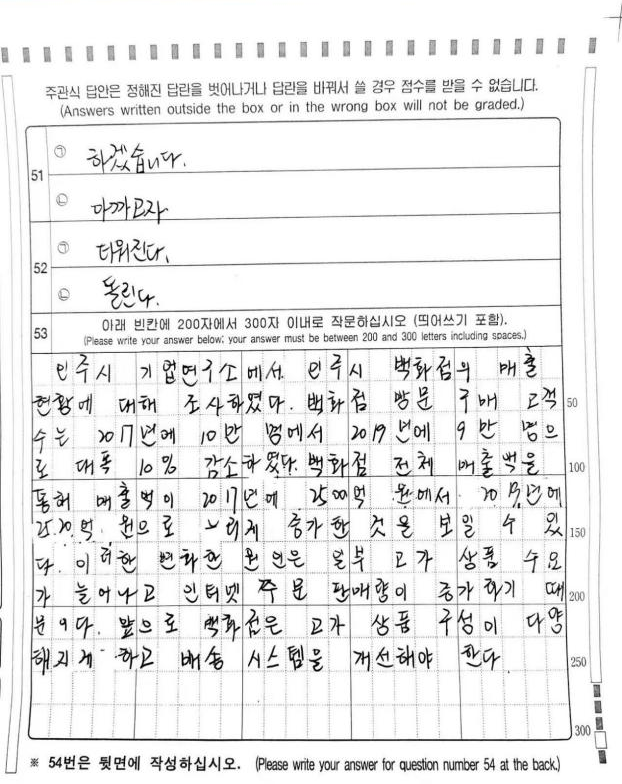 주관식 답안은 정해진 답란을 벗어나거나 답란을 바꿔서 쓸 경우 점수를 받을 수 없습니다.
(Answers written outside the box or in the wrong box will not be graded.)
51
㉠ 하겠습니다.
㉡ 아까고자
52
㉠ 더워진다.
㉡ 돌린다.
53
아래 빈칸에 200자에서 300자 이내로 작문하십시오 (띄어쓰기 포함).
(Please write your answer below; your answer must be between 200 and 300 letters including spaces.)
인주시 기업연구소에서 인주시 백화점의 매출
현황에 대해 조사하였다. 백화점 방문 구매 고객 50
수는 2017년에 10만 명에서 2019년에 9만 명으
로 대폭 10% 감소하였다. 백화점 전체 매출액을 100
통해 매출액이 2017년에 2500억 원에서 2019년에
2520억 원으로 느리게 증가한 것을 보일 수 있 150
다. 이러한 변화한 원인은 일부 고가 상품 수요
가 늘어나고 인터넷 주문 판매량이 증가하기 때 200
문이다. 앞으로 백화점은 고가 상품 구성이 다양
해지게 하고 배송 시스템을 개선해야 한다 250
300
※ 54번은 뒷면에 작성하십시오. (Please write your answer for question number 54 at the back.)